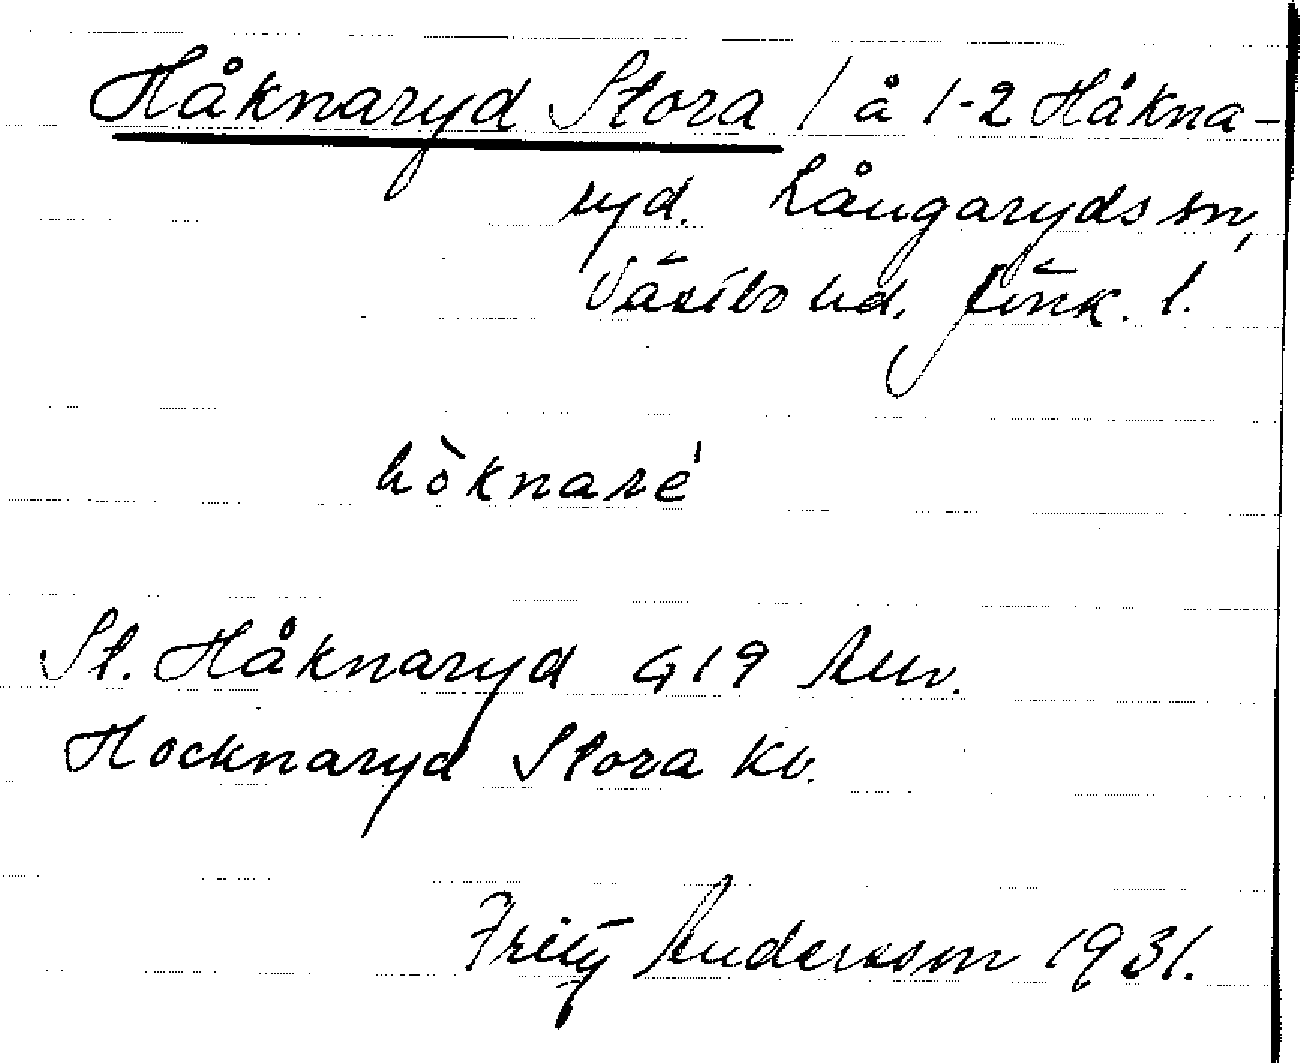 Håknaryd Stora / å 1-2 Håkna-
ryd. Långaryds sn,
Västbo hd. Jönk. l.
hòknaré
St. Håknaryd G19
Hocknaryd Stora Kb.
Fritz Andersson 1931.